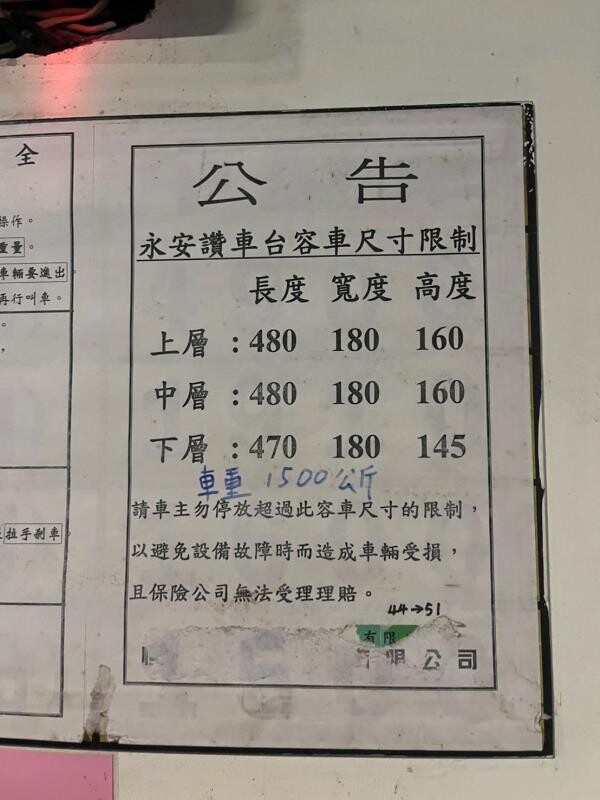 全
操作。
重量。
車輛要進出
再行叫車。
拉手剎車
公告
永安讚車台容車尺寸限制
長度 寬度 高度
上層：480 180 160
中層：480 180 160
下層：470 180 145
車重 1500公斤
請車主勿停放超過此容車尺寸的限制，
以避免設備故障時而造成車輛受損，
且保險公司無法受理理賠。
44→51
有限
限公司